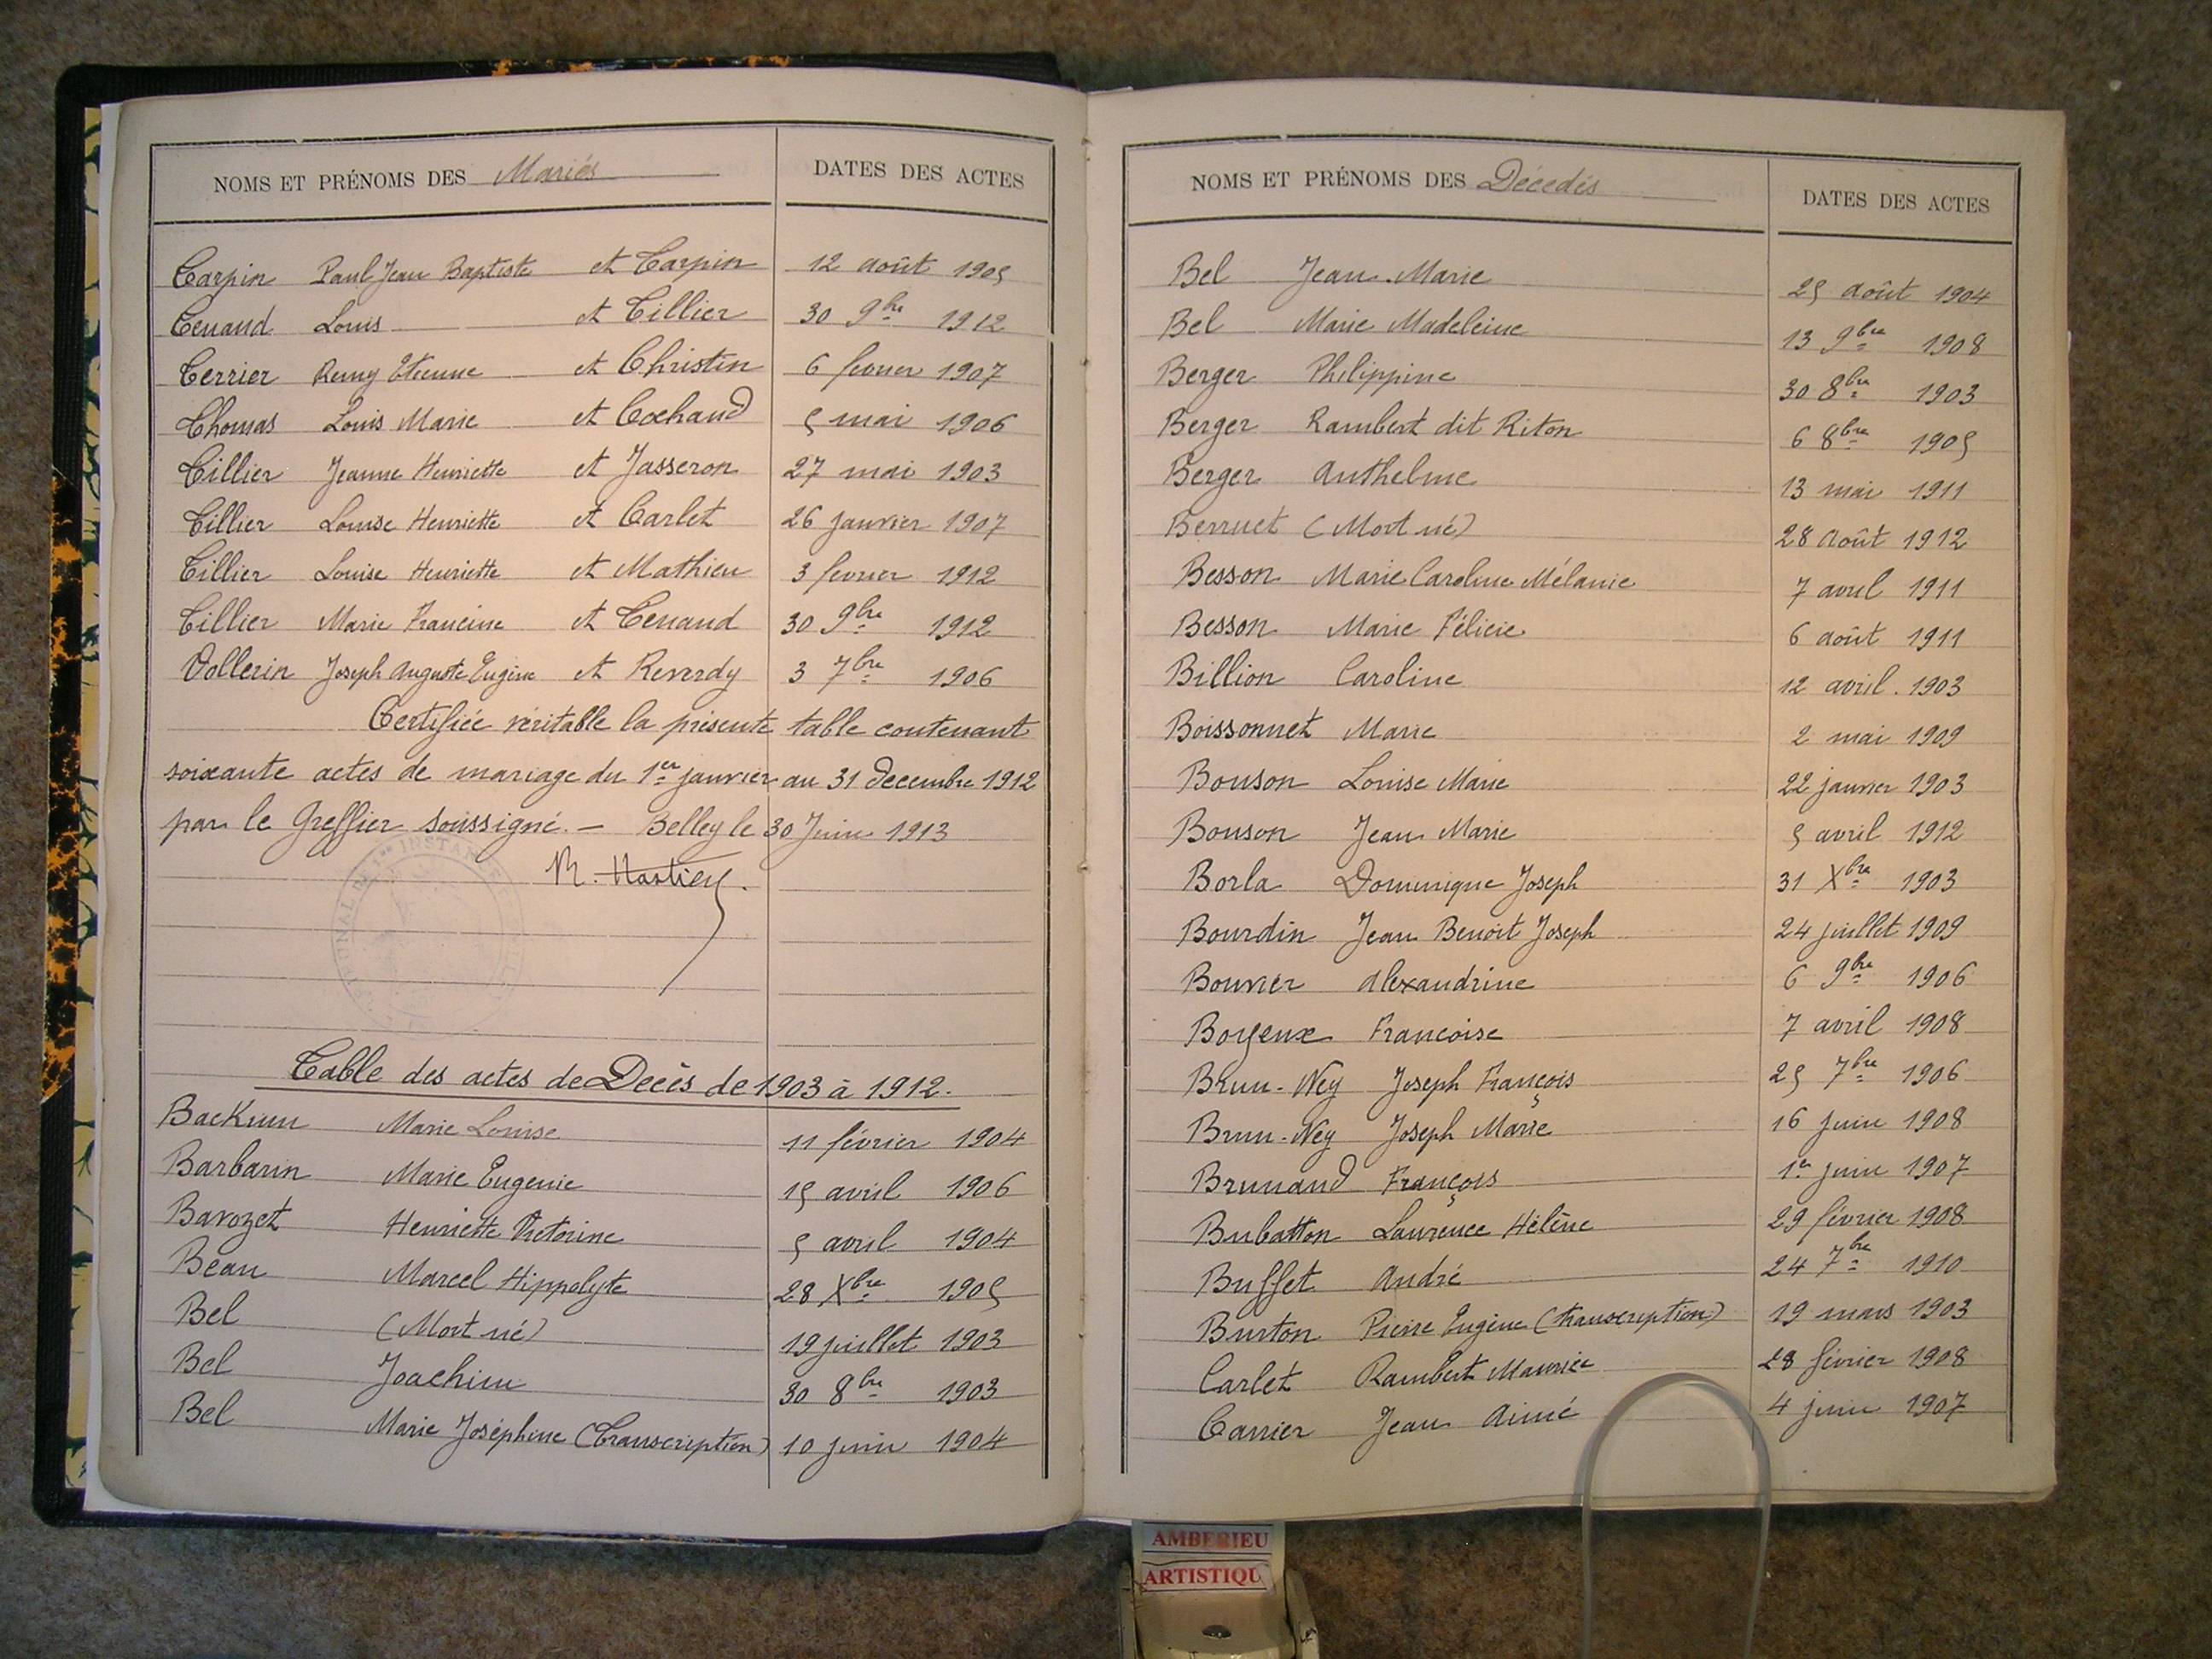 NOMS ET PRÉNOMS DES Mariés DATES DES ACTES
Tarpin Paul Jean Baptiste et Tarpin 12 août 1905
Tenand Louis et Tillier 30 9bre 1912
Terrier Remy Etienne et Christin 6 fevrier 1907
Thomas Louis Marie et Cochand 5 mai 1906
Tillier Jeanne Henriette et Jasseron 27 mai 1903
Tillier Louise Henriette et Carlet 26 janvier 1907
Tillier Louise Henriette et Mathieu 3 fevrier 1912
Tillier Marie Francine et Tenand 30 9bre 1912
Vollerin Joseph Auguste Eugène et Reverdy 3 7bre 1906
Certifiée véritable la présente table contenant
soixante actes de mariage du 1er janvier au 31 decembre 1912
par le Greffier soussigné. — Belley le 30 Juin 1913
Table des actes de Decès de 1903 à 1912.
Backum Marie Louise 11 février 1904
Barbarin Marie Eugenie 15 avril 1906
Barozet Henriette Victorine 5 avril 1904
Beau Marcel Hippolyte 28 Xbre 1905
Bel (Mort né) 19 juillet 1903
Bel Joachim 30 8bre 1903
Bel Marie Joséphine (Transcription) 10 juin 1904
NOMS ET PRÉNOMS DES Décedés DATES DES ACTES
Bel Jean-Marie 25 août 1904
Bel Marie Madeleine 13 9bre 1908
Berger Philippine 30 8bre 1903
Berger Rambert dit Riton 6 8bre 1905
Berger Anthelme 13 mai 1911
Berruet (Mort né) 28 août 1912
Besson Marie Caroline Mélanie 7 avril 1911
Besson Marie Félicie 6 août 1911
Billion Caroline 12 avril. 1903
Boissonnet Marie 2 mai 1909
Bonson Louise Marie 22 janvier 1903
Bonson Jean Marie 5 avril 1912
Borla Dominique Joseph 31 Xbre 1903
Bourdin Jean Benoit Joseph 24 juillet 1909
Bouvier Alexandrine 6 9bre 1906
Boyeux Francoise 7 avril 1908
Brun-Ney Joseph François 25 7bre 1906
Brun-Ney Joseph Marie 16 juin 1908
Brunand François 1er juin 1907
Bubatton Laurence Hélène 29 février 1908
Buffet André 24 7bre 1910
Burton Pierre Eugène (transcription) 19 mars 1903
Carlet Rambert Maurice 28 février 1908
Carrier Jean Aimé 4 juin 1907
AMBERIEU
ARTISTIQU